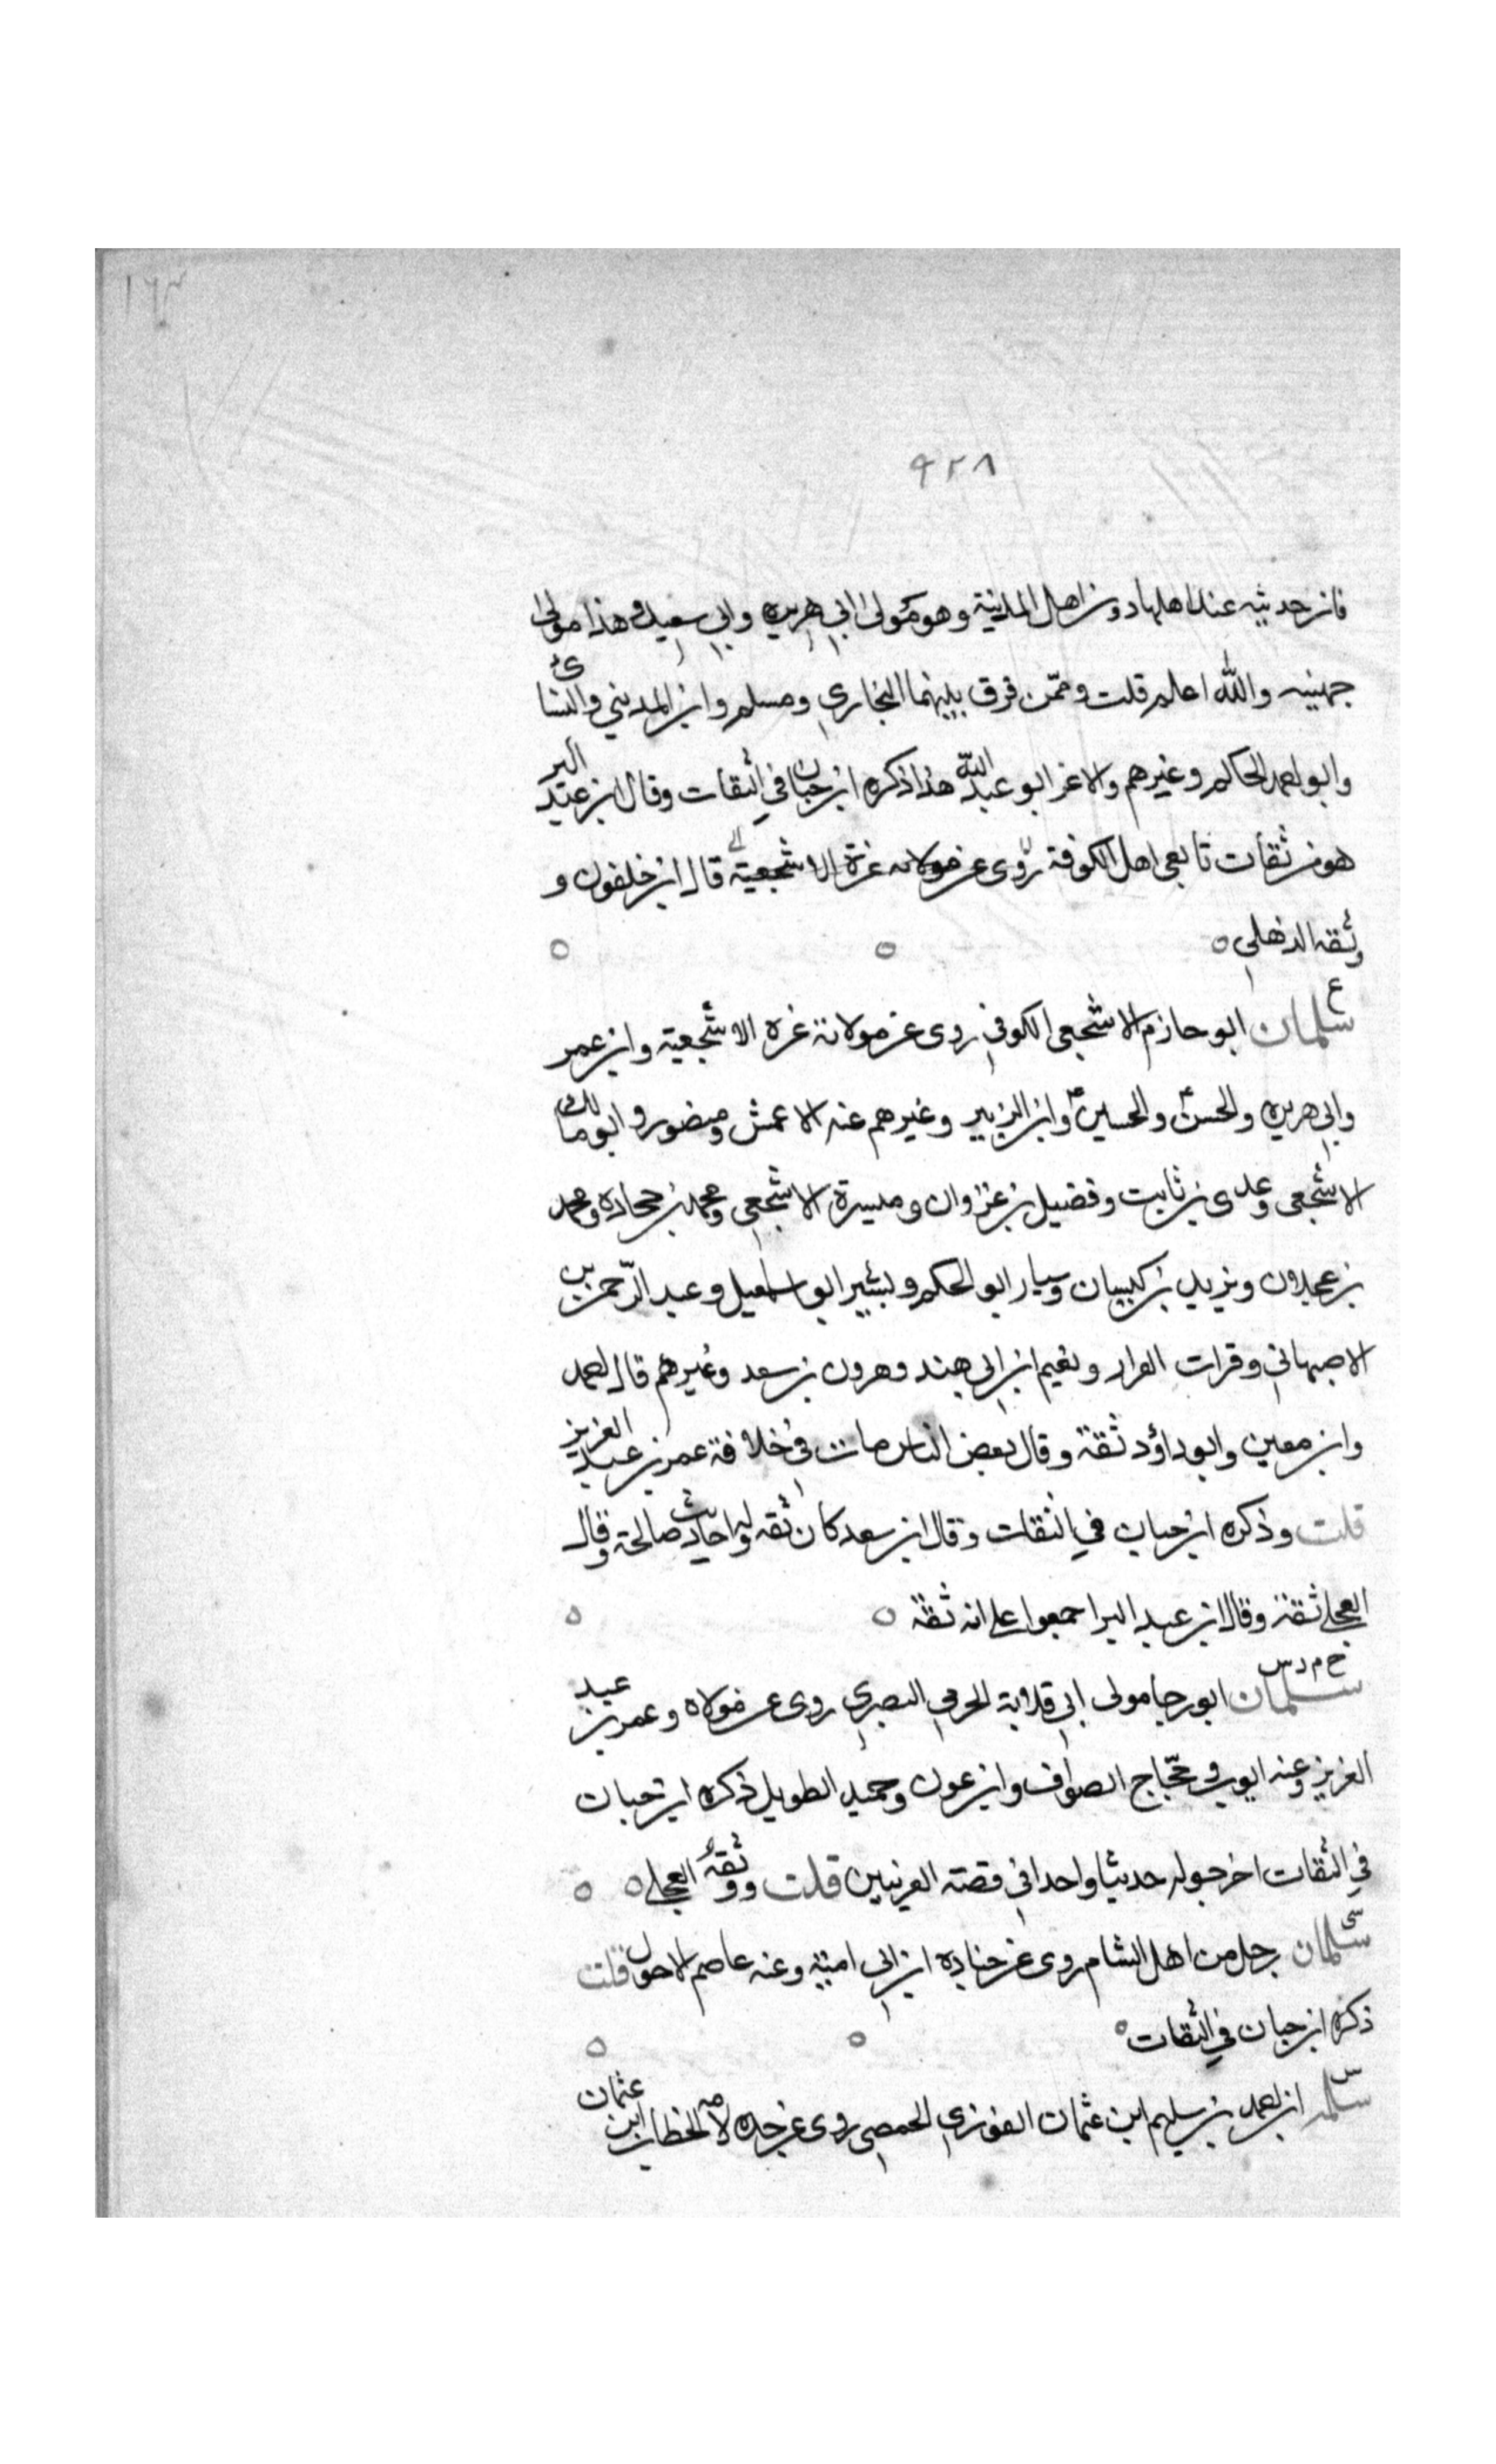 ١٦٣
٩٢٨
فان حديثه عند اهلها دون اهل المدينة وهو مولى ابي هريره وابي سعيد وهذا مولى
جهينه والله اعلم قلت وممّن فرق بينهما البخاري ومسلم وابن المديني والنسائى
وابو احمد الحاكم وغيرهم والاغر ابو عبد الله هذا ذكره ابن حبان في الثقات وقال ابن عبد البر
هو من ثقات تابعى اهل الكوفة روى عن مولاته عزة الاشجعية قال ابن خلفون و
وثقه الذهلى
ع
سلمان ابو حازم الاشجعى الكوفي روى عن مولاته عزه الاشجعية وابن عمر
وابي هريره والحسن والحسين وابن الزبير وغيرهم عنه الاعمش ومنصور وابو مالك
الاشجعى وعدى بن ثابت وفضيل بن غزوان وميسرة الاشجعي ومحمد بن جحاده ومحمد
بن عجلان ويزيد بن كيسان وسيار ابو الحكم وبشير ابو اسمعيل وعبد الرّحمن بن
الاصبهاني وفرات القزاز ونعيم ابن ابي هند وهرون بن سعد وغيرهم قال احمد
وابن معين وابو داؤد ثقة وقال بعض الناس مات في خلافة عمر بن عبد العزيز
قلت وذكره ابن حبان في الثقات وقال ابن سعد كان ثقه وله احاديث صالحة وقال
العجلي ثقة وقال ابن عبد البر اجمعوا على انه ثقة
خ م د س
سلمان ابو رجا مولى ابي قلابة الجرمي البصري روى عن مولاه وعمر بن عبد
العزيز وعنه ايوب وحجّاج الصواف وابن عون وحميد الطويل ذكره ابن حبان
في الثقات اخرجوا له حديثا واحدا في قصة العرنيين قلت ووثقه العجلي
سى
سلمان رجل من اهل الشام روى عن جناده ابن ابي امية وعنه عاصم الاحول قلت
ذكره ابن حبان في الثقات
س
سلمه ابن احمد بن سليم ابن عثمان الفوزي الحمصي روى عن جده لامه الخطاب ابن عثمان